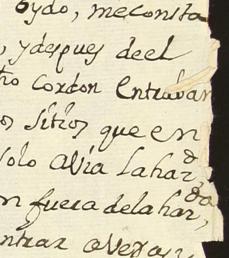 oydo, me consta
, y despues de el
ho Cordon Entraban
os sitios que en
solo avia la haz.da
n fuera de la haz.da,
ntrar a vezar